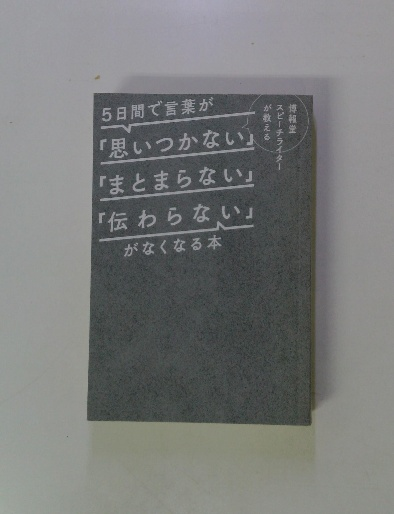 博報堂
スピーチライター
が教える
5日間で言葉が
「思いつかない」
「まとまらない」
「伝わらない」
がなくなる本